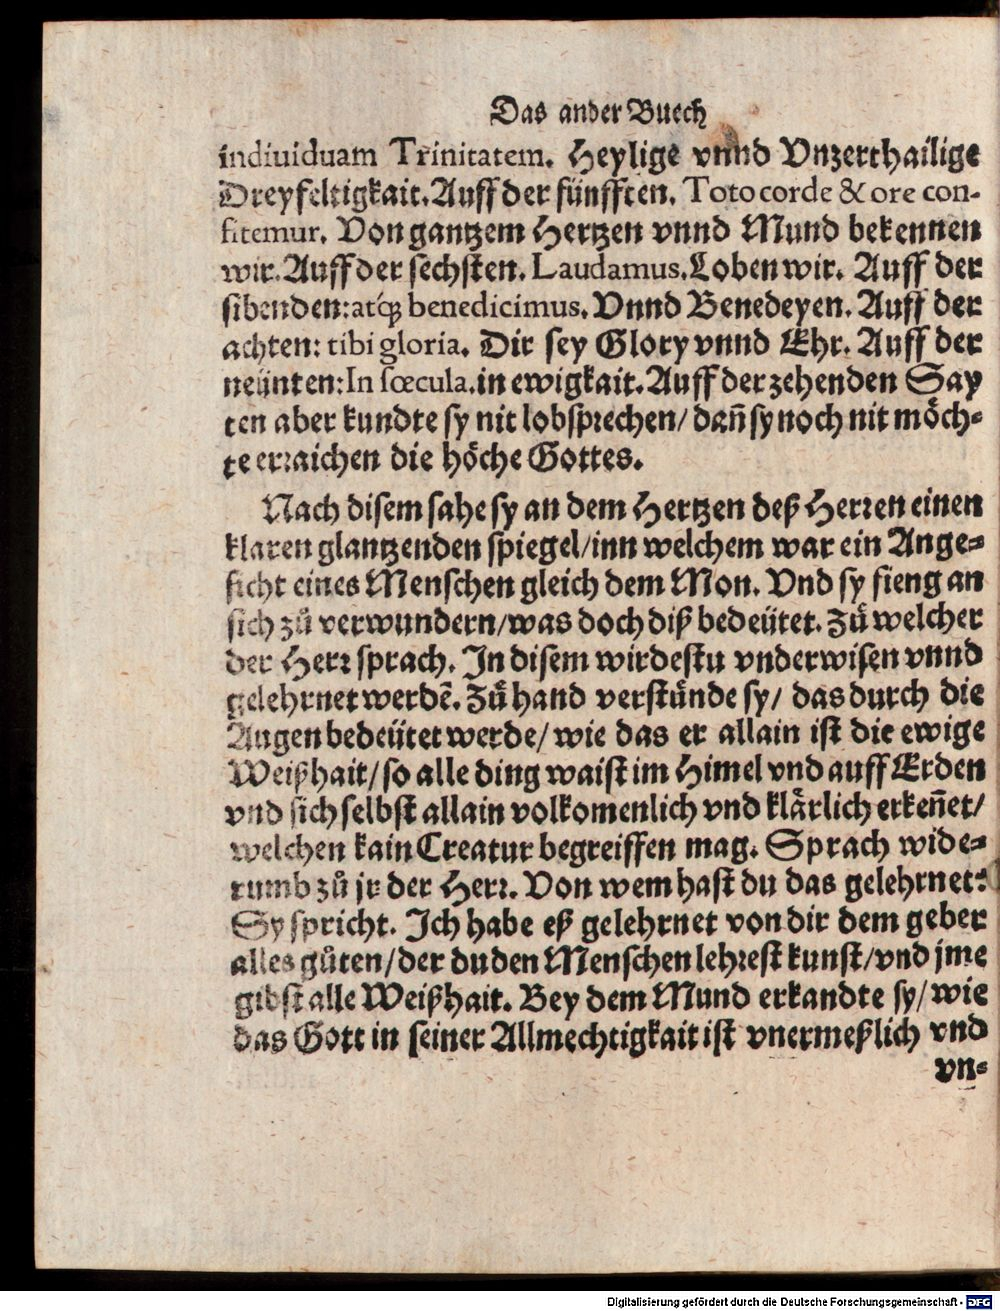 Das ander Buech
indiuiduam Trinitatem. Heylige vnnd Vnzerthailige
Dreyfeltigkait. Auff der fünfften. Toto corde & ore con-
fitemur. Von gantzem Hertzen vnnd Mund bekennen
wir. Auff der sechsten. Laudamus. Loben wir. Auff der
sibenden: atq́; benedicimus. Vnnd Benedeyen. Auff der
achten: tibi gloria. Dir sey Glory vnnd Ehr. Auff der
neünten: In sœcula. in ewigkait. Auff der zehenden Say
ten aber kundte sy nit lobsprechen/ dañ sy noch nit möch-
te erraichen die höche Gottes.
Nach disem sahe sy an dem Hertzen deß Herren einen
klaren glantzenden spiegel/ inn welchem war ein Ange-
sicht eines Menschen gleich dem Mon. Vnd sy fieng an
sich zů verwundern/ was doch diß bedeütet. Zů welcher
der Herr sprach. In disem wirdestu vnderwisen vnnd
gelehrnet werdē. Zů hand verstůnde sy/ das durch die
Augen bedeütet werde/ wie das er allain ist die ewige
Weißhait/ so alle ding waist im Himel vnd auff Erden
vnd sich selbst allain volkomenlich vnd klärlich erkeñet/
welchen kain Creatur begreiffen mag. Sprach wide-
rumb zů jr der Herr. Von wem hast du das gelehrnet:
Sy spricht. Ich habe eß gelehrnet von dir dem geber
alles gůten/ der du den Menschen lehrest kunst/ vnd jme
gibst alle Weißhait. Bey dem Mund erkandte sy/ wie
das Gott in seiner Allmechtigkait ist vnermeßlich vnd
vn-
Digitalisierung gefördert durch die Deutsche Forschungsgemeinschaft - DFG